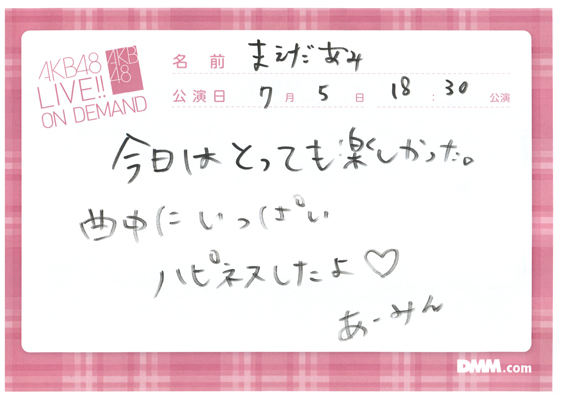 AKB48
LIVE!!
ON DEMAND
AKB
48
名前 まえだあみ
公演日 7月5日 18:30公演
今日はとっても楽しかった。
曲中にいっぱい
ハピネスしたよ♡
あーみん
DMM.com